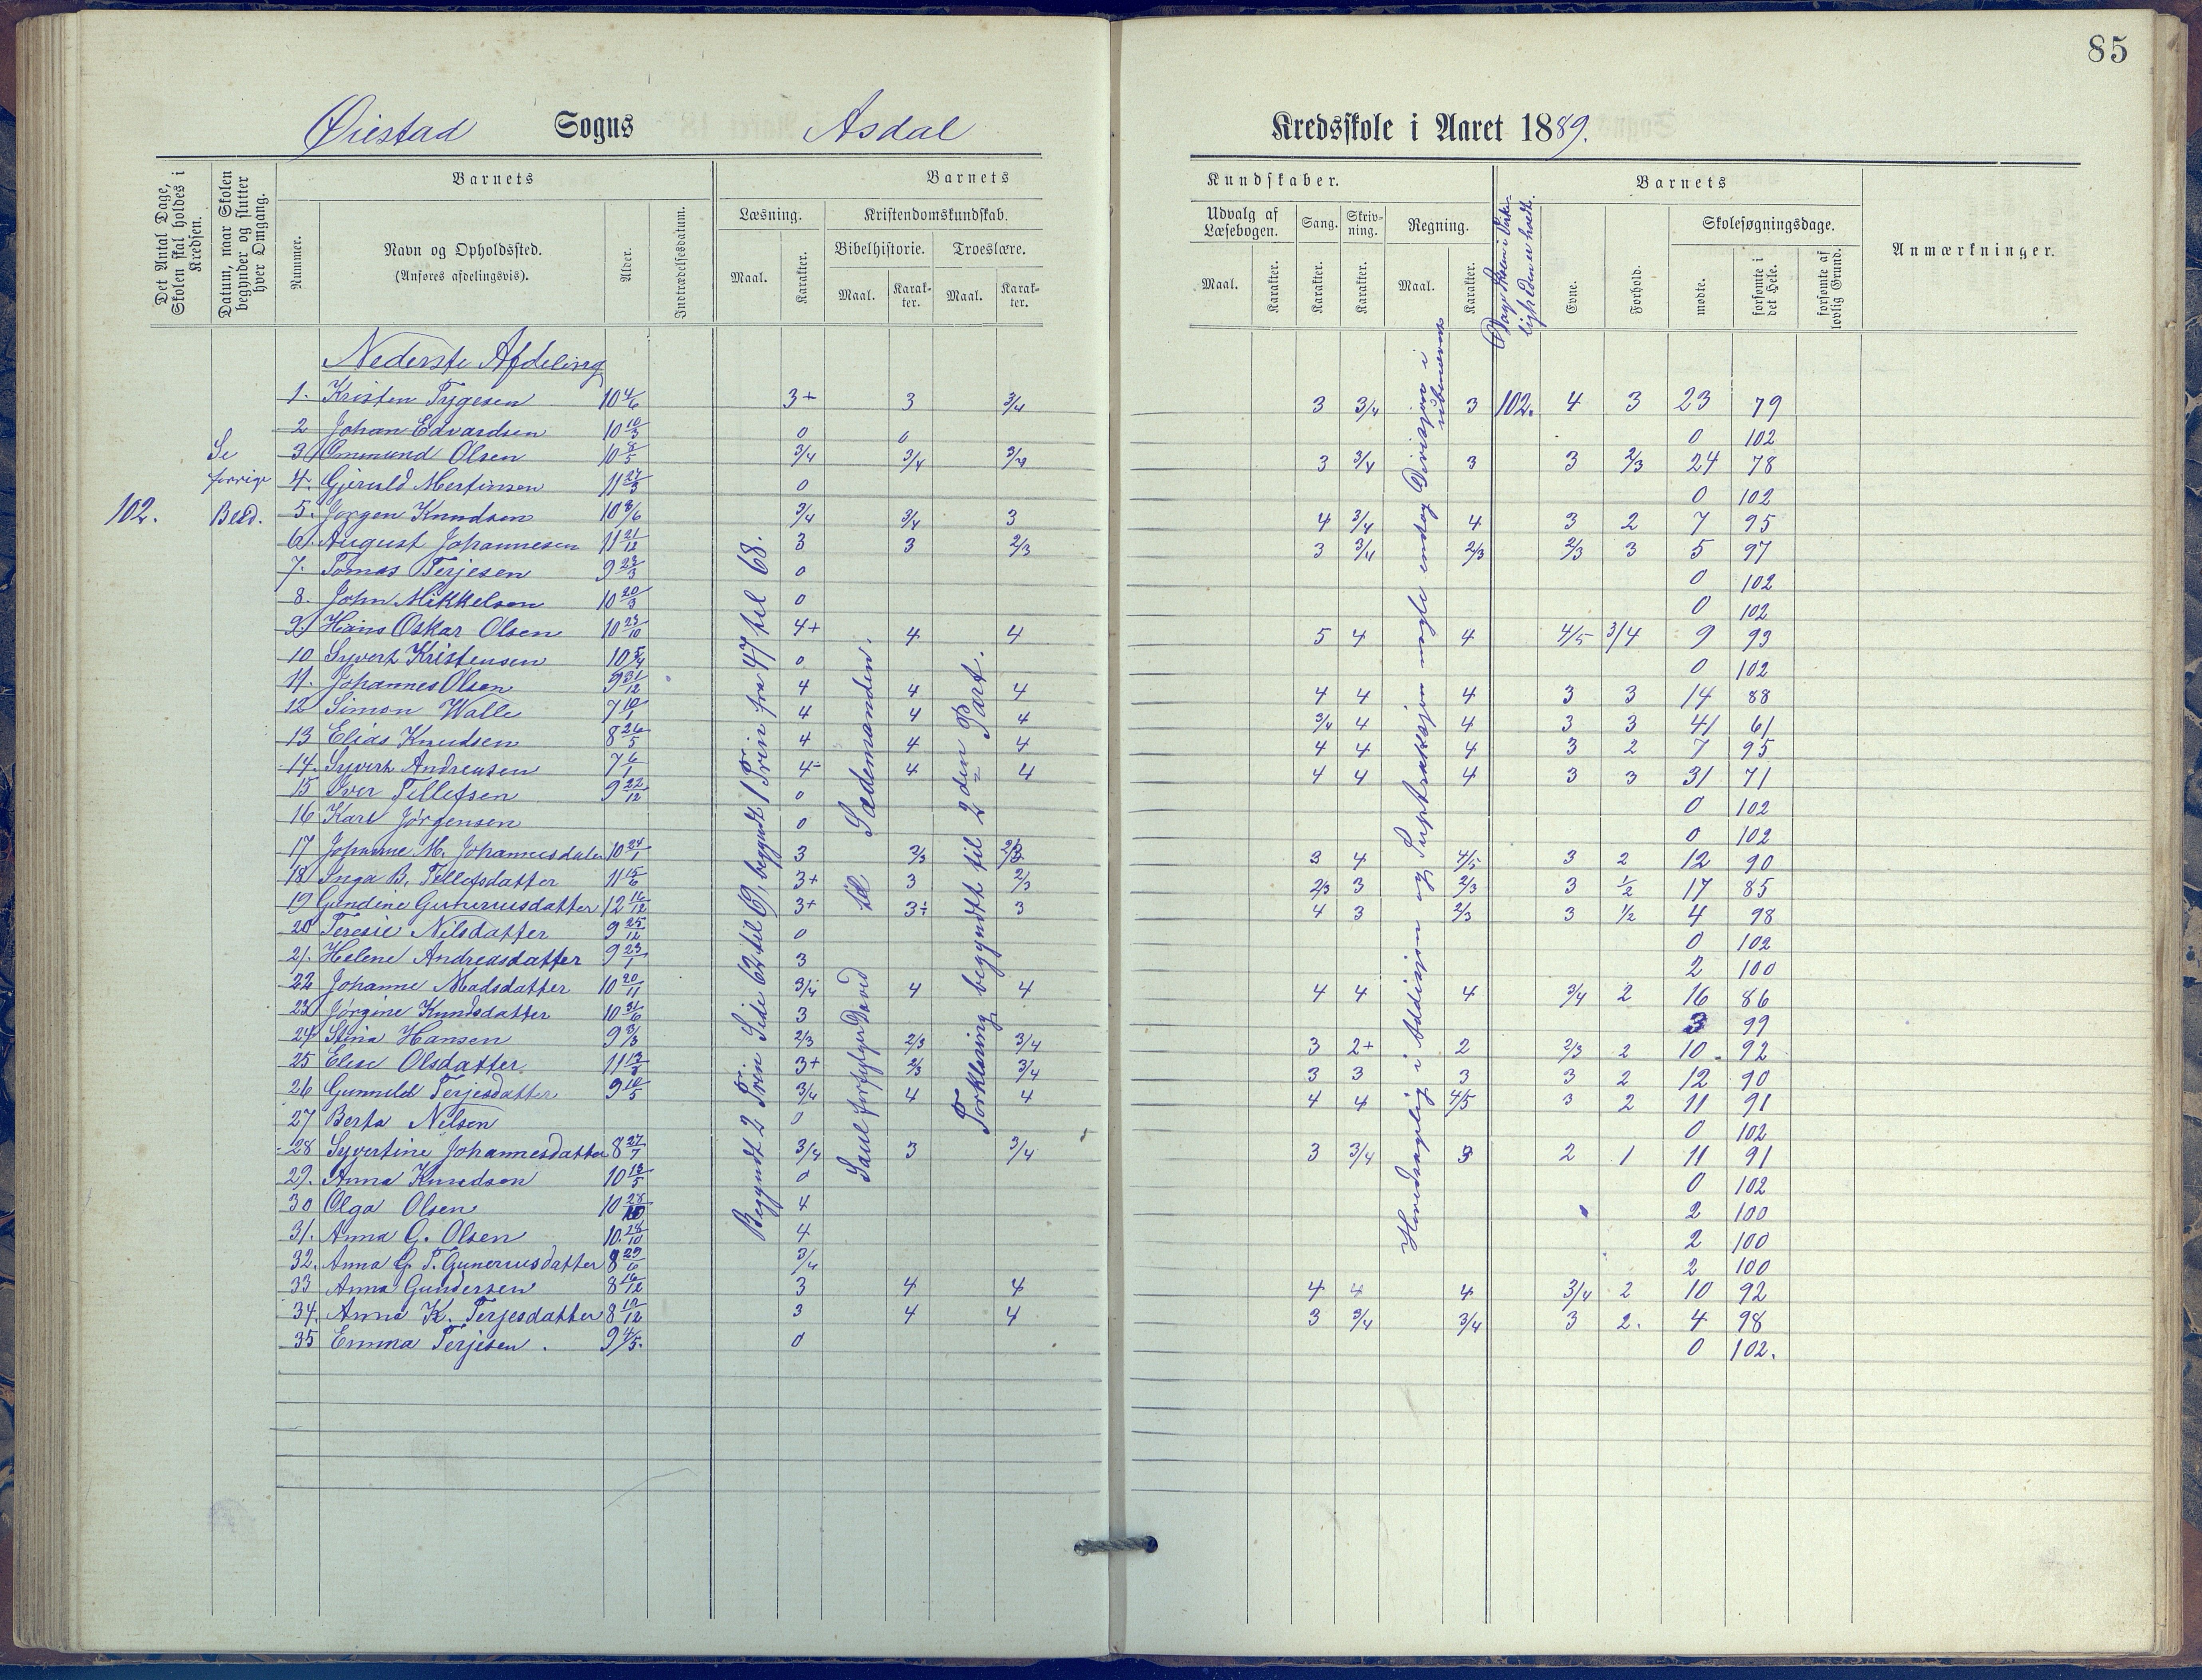 85
Øiestad Sogns Asdal Kredsskole i Aaret 1889.
Det Antal Dage, Skolen skal holdes i Kredsen.
Datum, naar Skolen begynder og slutter hver Omgang.
Barnets
Nummer.
Navn og Opholdssted.
(Anføres afdelingsvis).
Alder.
Indtrædelsesdatum.
Barnets
Læsning.
Maal.
Karakter.
Kristendomskundskab.
Bibelhistorie.
Maal.
Karakter.
Troeslære.
Maal.
Karakter.
Kundskaber.
Udvalg af Læsebogen.
Maal.
Karakter.
Sang.
Karakter.
Skrivning.
Karakter.
Regning.
Maal.
Karakter.
Barnets
Evne.
Forhold.
Skolesøgningsdage.
mødte.
forsømte i det Hele.
forsømte af lovlig Grund.
Anmærkninger.
102.
Se
forrige
Blad.
Nederste Afdeling
1. Kristen Tygesen 10 4/6 3+ 3 3/4 3 3/4 3 102. 4 3 23 79
2 Johan Edvardsen 10 10/3 0 0 0 102
3 Ommund Olsen 10 8/5 3/4 3/4 3/4 3 3/4 3 3 2/3 24 78
4. Gjeruld Mertinsen 11 27/3 0 0 102
5. Jørgen Knudsen 10 3/6 3/4 3/4 3 4 3/4 4 3 2 7 95
6. August Johannesen 11 21/12 3 3 2/3 3 3/4 2/3 2/3 3 5 97
7. Tomas Terjesen 9 23/3 0 0 102
8. John Mikkelsen 10 20/3 0 0 102
9. Hans Oskar Olsen 10 23/10 4+ 4 4 5 4 4 4/5 3/4 9 93
10 Syvert Kristensen 10 5/4 0 0 102
11. Johannes Olsen 9 31/12 4 4 4 4 4 4 3 3 14 88
12 Simon Walle 7 10/1 4 4 4 3/4 4 4 3 3 41 61
13 Elias Knudsen 8 26/5 4 4 4 4 4 4 3 2 7 95
14. Syvert Andreasen 7 6/1 4- 4 4 4 4 4 3 3 31 71
15 Iver Tellefsen 9 22/12 0 0 102
16 Karl Jørgensen 0 0 102
17 Johanne M. Johannesdater 10 24/1 3 2/3 2/3 3 4 4/5 3 2 12 90
18 Inga B. Tellefsdatter 11 15/6 3+ 3 2/3 2/3 3 2/3 3 1/2 17 85
19 Gundine Gunerusdatter 12 16/12 3+ 3÷ 3 4 3 2/3 3 1/2 4 98
20 Teresie Nilsdatter 9 25/12 0 0 102
21. Helene Andreasdatter 9 23/1 3 2 100
22 Johanne Madsdatter 10 20/11 3/4 4 4 4 4 4 3/4 2 16 86
23 Jørgine Knudsdatter 10 31/6 3 3 99
24 Stina Hansen 9 3/3 2/3 2/3 3/4 3 2+ 2 2/3 2 10 92
25 Elise Olsdatter 11 13/8 3+ 2/3 3/4 3 3 3 3 2 12 90
26 Gunnild Terjesdatter 9 10/5 3/4 4 4 4 4 4/5 3 2 11 91
27 Berta Nilsen 0 0 102
28 Syvertine Johannesdatter 8 27/7 3/4 3 3/4 3 3/4 3 2 1 11 91
29. Anna Knudsen 10 13/5 0 0 102
30 Olga Olsen 10 28/10 4 2 100
31. Anna G. Olsen 10 28/10 4 2 100
32. Anna G. T. Gunerusdatter 8 29/6 3/4 2 100
33 Anna Gundersen 8 16/12 3 4 4 4 4 4 3/4 2 10 92
34. Anna K. Terjesdatter 8 10/12 3 4 4 3 3/4 3/4 3 2. 4 98
35 Emma Terjesen. 9 4/5. 0 0 102.
Begyndt 2 Trin Side 62 til 69, begyndt 1 Trin fra 47 til 68.
Saul forfølger David til Sædemanden.
Forklaring begyndt til 2den Part.
Hovedsagelig i Addisjon og Suptraksjon nogle endog Divisjon i